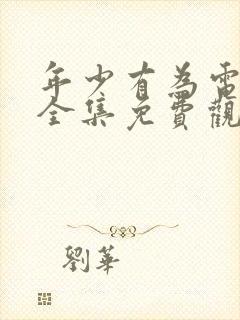 年少有為電
全集免費觀
劉華